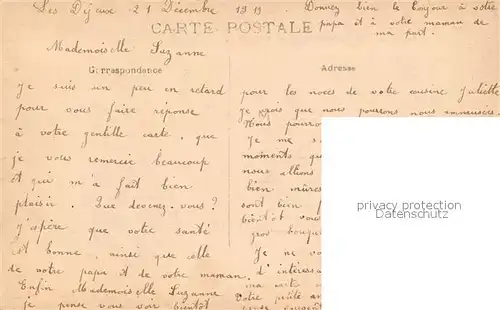 Les Dijeux 21 Décembre 1919
Donnez bien le bonjour à votre
papa et à votre maman de
ma part.
CARTE POSTALE
Mademoiselle Suzanne
Correspondance
Adresse
Je suis un peu en retard
pour vous faire réponse
à votre gentille carte, que
je vous remercie beaucoup
et qui m'a fait bien
plaisir. Que devenez-vous?
J'espère que votre santé
est bonne, ainsi que celle
de votre papa et de votre maman.
Enfin Mademoiselle Suzanne
je pense vous voir bientôt
pour les noces de votre cousine Juliette
Je crois que nous pourrons nous amuser
Nous pourro
Je me s
moments qu
nous allions
bien mûres
sont bien
bientôt vous
gros bouque
Je ne vo
d'intéress
ma carte
Votre petite am
privacy protection
Datenschutz